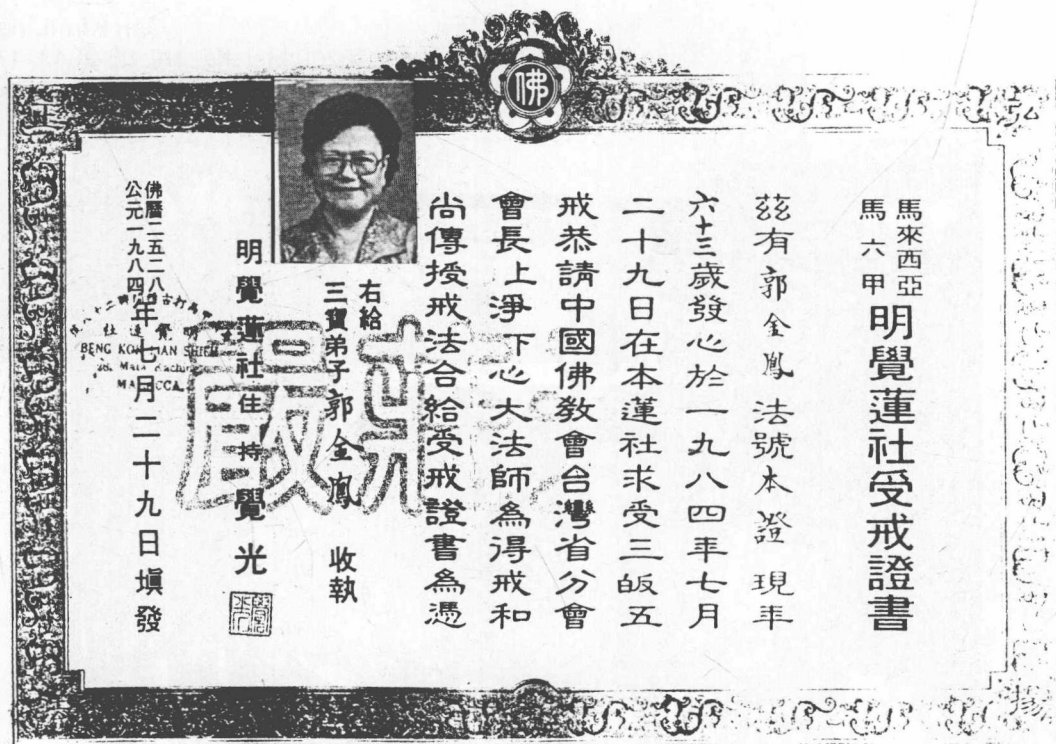 佛
弘
揚
正
法
馬來西亞
馬六甲
明覺蓮社受戒證書
茲有郭金鳳法號本證現年
六十三歲發心於一九八四年七月
二十九日在本蓮社求受三皈五
戒恭請中國佛教會台灣省分會
會長上淨下心大法師為得戒和
尚傳授戒法合給受戒證書為憑
右給
三寶弟子郭金鳳 收執
明覺蓮社住持覺光
佛曆二五二八
公元一九八四年七月二十九日塡發
莊嚴
BENG KOH LIAN SHIEH
MALACCA